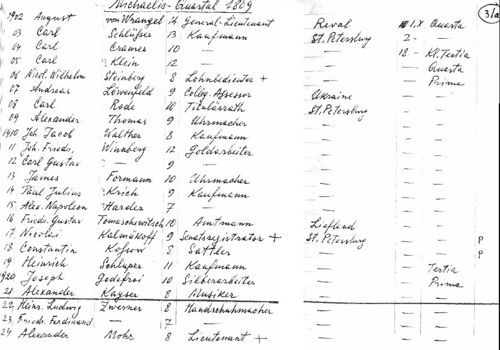 Michaelis-Quartal 1809
3/2
1902 August von Wrangel 14 General-Lieutenant Reval 1.IX Quarta
03 Carl Schlüsser 13 Kaufmann St. Petersburg 2 - —
04 Carl Cramer 10 — — 18 - Kl. Tertia
05 Carl Klein 12 — — — Quarta
06 Nicol. Wilhelm Steinberg 8 Lohnbedienter + — — Prima
07 Andreas Löwenfeld 9 Colleg. Assessor Ukraine — —
08 Carl Rode 10 Titulärrath St. Petersburg — —
09 Alexander Thomas 9 Uhrmacher — — —
1910 Joh. Jacob Walther 8 Kaufmann — — —
11 Joh. Frieds. Winberg 12 Goldarbeiter — — —
12 Carl Gustav — 9 — — — —
13 James Formann 10 Uhrmacher — — —
14 Paul Julius Krich 9 Kaufmann — — —
15 Alex. Napoleon Harder 7 — — — —
16 Frieds. Gustav Tomaschewitsch 10 Amtmann Liefland — —
17 Nicolai Kalmükoff 9 Senatsregistrator + St. Petersburg — — P
18 Constantin Kosow 8 Sattler — — — P
19 Heinrich Schlüper 11 Kaufmann — — Tertia
1920 Joseph Godefroi 10 Silberarbeiter — — Prima
21 Alexander Kayser 8 Musiker — — —
22. Heinr. Ludwig Zwerner 8 Handschuhmacher — — —
23. Frieds. Ferdinand — 7 — — — —
24 Alexander Mohr 8 Lieutenant + — — —